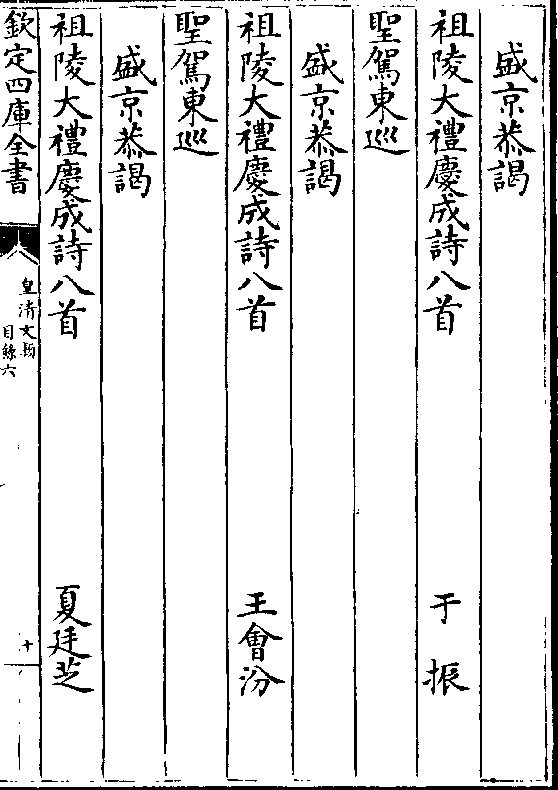 盛京恭謁
祖陵大禮慶成詩八首 于振
聖駕東巡
盛京恭謁
祖陵大禮慶成詩八首 王會汾
聖駕東巡
盛京恭謁
祖陵大禮慶成詩八首 夏廷芝
欽定四庫全書
皇清文穎
目錄六
十